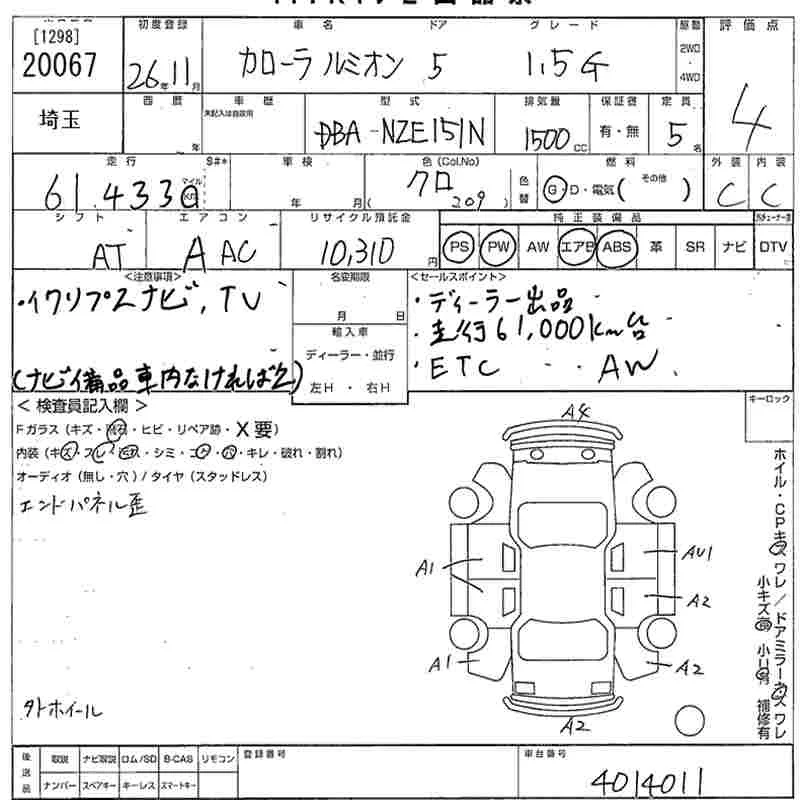 [1298]
20067
初度登録 車名 ドア グレード 駆動 評価点
26年11月 カローラ ルミオン 5 1.5G 2WD 4WD
4
埼玉
西暦 車歴 型式 排気量 保証書 定員
年 未記入は自家用 DBA-NZE151N 1500cc 有・無 5名
走行 S#* 車検 色(Col.No) 燃料 外装 内装
61,433 マイル Km 年 月 クロ (209) 色替 G・D・電気( その他 ) C C
シフト エアコン リサイクル預託金 純正装備品
AT AAC 10,310円 PS PW AW エアB ABS 革 SR ナビ DTV
<注意事項> 名変期限 <セールスポイント>
・イクリプスナビ、TV 月 日 ・ディーラー出品
輸入車 ・走行61,000km台
ディーラー・並行 ・ETC ・・AW.
(ナビ備品車内なければ乞) 左H ・ 右H
<検査員記入欄> キーロック
Fガラス(キズ・飛石・ヒビ・リペア跡・X要)
内装(キズ・スレ・ヒビ・シミ・コゲ・穴・キレ・破れ・割れ)
オーディオ(無し・穴)/タイヤ(スタッドレス)
エンドパネル歪
A4
A1 AU1
A2
A1 A2
A2
ホイル・CPキズ ワレ/ドアミラーキズ ワレ
小キズ有 小U有 補修有
外ホイール
後送品 取説 ナビ取説 ロム/SD B-CAS リモコン 登録番号 車台番号
ナンバー スペアキー キーレス スマートキー 4014011